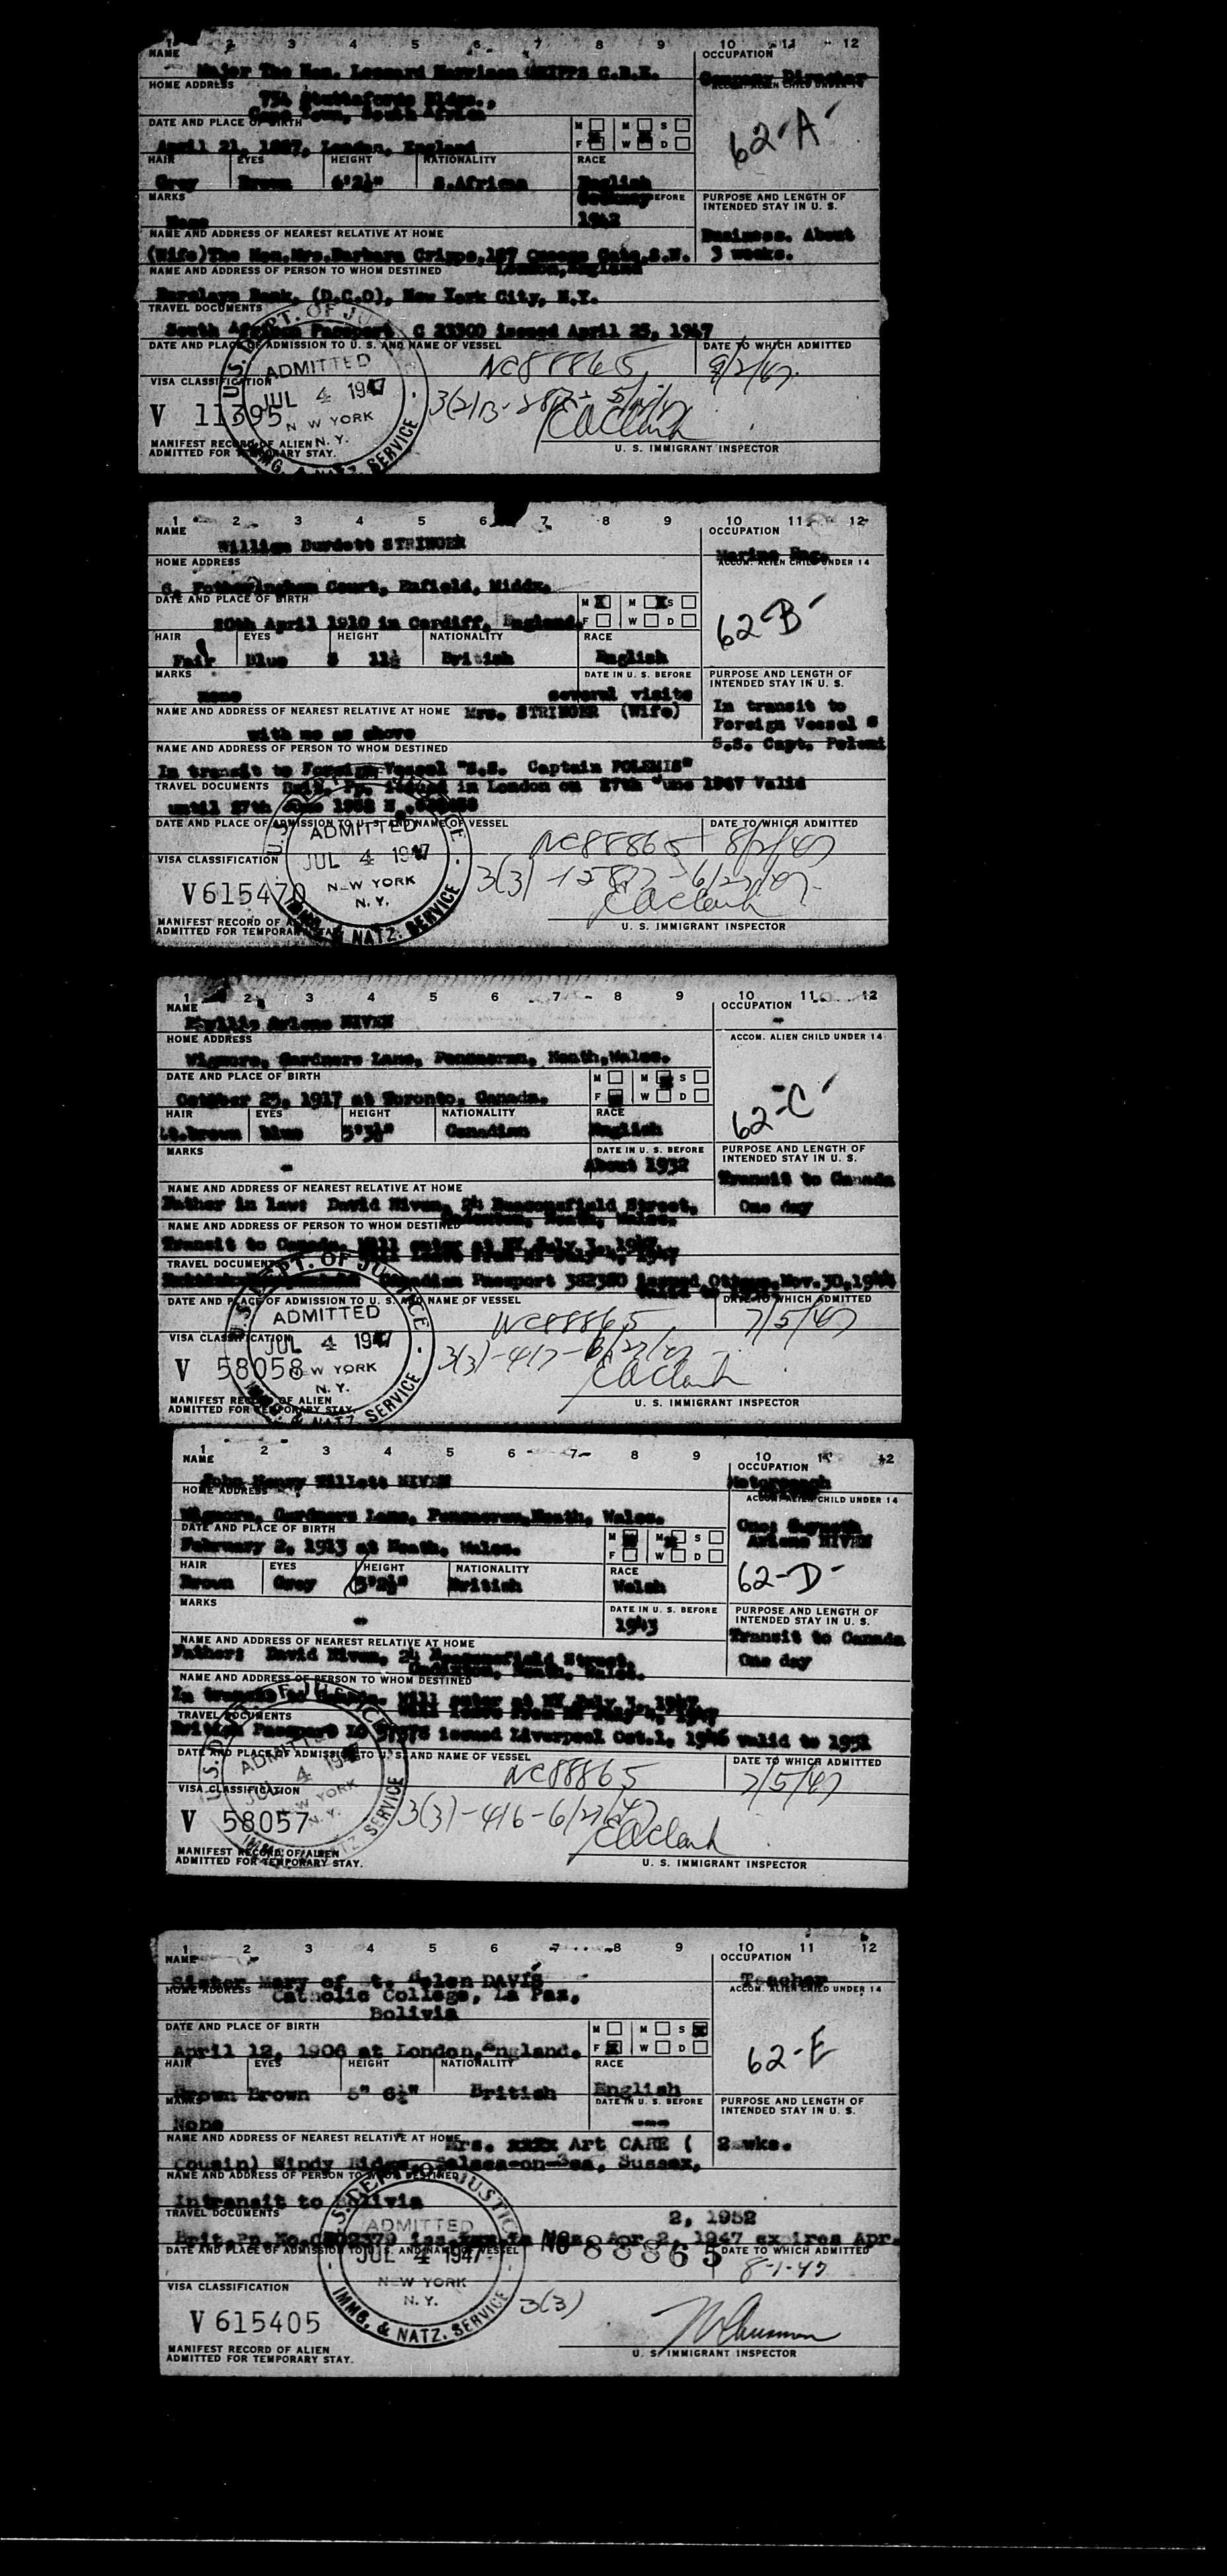 1 2 3 4 5 6 7 8 9 10 11 12
NAME OCCUPATION
Major The Hon. Leonard Harrison CRIPPS C.B.E. Company Director
HOME ADDRESS ACCOM. ALIEN CHILD UNDER 14
Bldgs.,
Cape Town, South Africa
62-A-
DATE AND PLACE OF BIRTH M M S
F W D
April 21, 1887, London, England
HAIR EYES HEIGHT NATIONALITY RACE
Grey Brown 6'2½" S.African English
MARKS BEFORE PURPOSE AND LENGTH OF
INTENDED STAY IN U. S.
None 1942
NAME AND ADDRESS OF NEAREST RELATIVE AT HOME
Business. About
(Wife)The Hon.Mrs.Barbara Cripps,187 Queens Gate,S.W. 3 weeks.
London,England
NAME AND ADDRESS OF PERSON TO WHOM DESTINED
Barclays Bank, (D.C.O), New York City, N.Y.
TRAVEL DOCUMENTS
South African Passport C 23300 issued April 25, 1947
DATE AND PLACE OF ADMISSION TO U. S. AND NAME OF VESSEL DATE TO WHICH ADMITTED
U.S. DEPT. OF JUSTICE
ADMITTED
JUL 4 1947
NEW YORK
N. Y.
IMMG. & NATZ. SERVICE
NC88865
VISA CLASSIFICATION
V 11395
MANIFEST RECORD OF ALIEN
ADMITTED FOR TEMPORARY STAY.
U. S. IMMIGRANT INSPECTOR
1 2 3 4 5 6 7 8 9 10 11 12
NAME OCCUPATION
William Burdett STRINGER Marine Eng.
HOME ADDRESS ACCOM. ALIEN CHILD UNDER 14
6, Fotheringham Court, Enfield, Middx.
62-B-
DATE AND PLACE OF BIRTH M M S
F W D
20th April 1910 in Cardiff, England.
HAIR EYES HEIGHT NATIONALITY RACE
Fair Blue 5 11½ British English
MARKS DATE IN U. S. BEFORE PURPOSE AND LENGTH OF
INTENDED STAY IN U. S.
none several visits
In transit to
NAME AND ADDRESS OF NEAREST RELATIVE AT HOME Mrs. STRINGER (Wife)
Foreign Vessel
with me as above S.S. Capt. Polemi
NAME AND ADDRESS OF PERSON TO WHOM DESTINED
In transit to Foreign Vessel "S.S. Captain POLEMIS"
TRAVEL DOCUMENTS Brit. Pp. issued in London on 27th June 1947 Valid
until 27th June 1952
DATE AND PLACE OF ADMISSION TO U. S. AND NAME OF VESSEL DATE TO WHICH ADMITTED
ADMITTED
JUL 4 1947
NEW YORK
N. Y.
IMMG. & NATZ. SERVICE
NC88865 8/2/47
VISA CLASSIFICATION
V615470
MANIFEST RECORD OF ALIEN
ADMITTED FOR TEMPORARY STAY
U. S. IMMIGRANT INSPECTOR
1 2 3 4 5 6 7 8 9 10 11 12
NAME OCCUPATION
Phyllis Arlene NIVEN -
HOME ADDRESS ACCOM. ALIEN CHILD UNDER 14
Wigmore, Gardners Lane, Neath,Wales.
62-C-
DATE AND PLACE OF BIRTH M M S
F W D
October 25, 1917 at Toronto, Canada.
HAIR EYES HEIGHT NATIONALITY RACE
Lt.brown blue 5'3½" Canadian English
MARKS DATE IN U. S. BEFORE PURPOSE AND LENGTH OF
INTENDED STAY IN U. S.
- About 1932
Transit to Canada
NAME AND ADDRESS OF NEAREST RELATIVE AT HOME
Father in law: David Niven, 24 Beaconsfield Street, One day
Neath, Wales.
NAME AND ADDRESS OF PERSON TO WHOM DESTINED
Transit to Canada. Will enter at NY July 3, 1947
Will leave from NY July 4, 1947
TRAVEL DOCUMENTS
Canadian Passport 382380 issued Ottawa,Nov.30,1944
DATE AND PLACE OF ADMISSION TO U. S. AND NAME OF VESSEL DATE TO WHICH ADMITTED
U.S. DEPT. OF JUSTICE
ADMITTED
JUL 4 1947
NEW YORK
N. Y.
IMMG. & NATZ. SERVICE
NC88865 7/5/47
VISA CLASSIFICATION
V 58058
MANIFEST RECORD OF ALIEN
ADMITTED FOR TEMPORARY STAY.
U. S. IMMIGRANT INSPECTOR
1 2 3 4 5 6 7 8 9 10 11 12
NAME OCCUPATION
John Henry Willett NIVEN
HOME ADDRESS ACCOM. ALIEN CHILD UNDER 14
Wigmore, Gardners Lane, Neath, Wales.
One:
Arlene NIVEN
62-D-
DATE AND PLACE OF BIRTH M M S
F W D
February 2, 1913 at Neath, Wales.
HAIR EYES HEIGHT NATIONALITY RACE
Brown Grey 5'2½" British Welsh
MARKS DATE IN U. S. BEFORE PURPOSE AND LENGTH OF
INTENDED STAY IN U. S.
- 1943
Transit to Canada
NAME AND ADDRESS OF NEAREST RELATIVE AT HOME
Father: David Niven, 24 Beaconsfield Street, One day
Neath, Wales.
NAME AND ADDRESS OF PERSON TO WHOM DESTINED
In transit to Canada. Will enter at NY July 3, 1947
Will leave from NY July 4, 1947
TRAVEL DOCUMENTS
British Passport issued Liverpool Oct.1, 1946 valid to 1951
DATE AND PLACE OF ADMISSION TO U. S. AND NAME OF VESSEL DATE TO WHICH ADMITTED
ADMITTED
JUL 4 1947
NEW YORK
N. Y.
NC88865 7/5/47
VISA CLASSIFICATION
V 58057
3(3)-416-6/27/47
MANIFEST RECORD OF ALIEN
ADMITTED FOR TEMPORARY STAY.
U. S. IMMIGRANT INSPECTOR
1 2 3 4 5 6 7 8 9 10 11 12
NAME OCCUPATION
Sister Mary of St. Helen DAVIS Teacher
HOME ADDRESS ACCOM. ALIEN CHILD UNDER 14
Catholic College, La Paz,
Bolivia
62-E
DATE AND PLACE OF BIRTH M M S
F W D
April 12, 1906 at London,England.
HAIR EYES HEIGHT NATIONALITY RACE
Brown Brown 5" 6½" British English
MARKS DATE IN U. S. BEFORE PURPOSE AND LENGTH OF
INTENDED STAY IN U. S.
None ---
NAME AND ADDRESS OF NEAREST RELATIVE AT HOME Mrs. Art CARE ( 2 wks.
cousin) Windy Ridge, Selsea-on-Sea, Sussex,
NAME AND ADDRESS OF PERSON TO WHOM DESTINED
Intransit to Bolivia
TRAVEL DOCUMENTS
2, 1952
Brit.Pp.No. Apr 2, 1947 expires Apr.
DATE AND PLACE OF ADMISSION TO U. S. AND NAME OF VESSEL NC 88865 DATE TO WHICH ADMITTED
8-1-47
U.S. DEPT. OF JUSTICE
ADMITTED
JUL 4 1947
NEW YORK
N. Y.
IMMG. & NATZ. SERVICE
VISA CLASSIFICATION
V615405
3(3)
MANIFEST RECORD OF ALIEN
ADMITTED FOR TEMPORARY STAY.
U. S. IMMIGRANT INSPECTOR